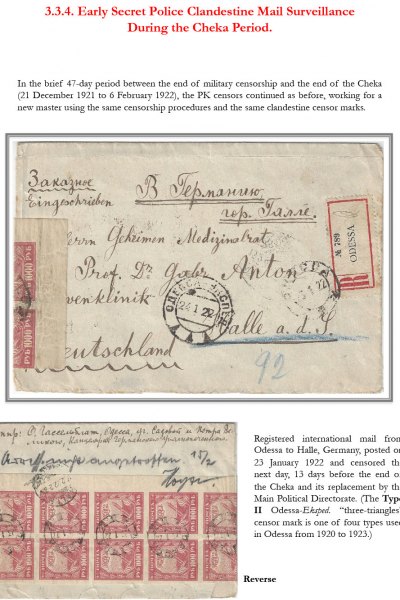 3.3.4. Early Secret Police Clandestine Mail Surveillance
During the Cheka Period.
In the brief 47-day period between the end of military censorship and the end of the Cheka
(21 December 1921 to 6 February 1922), the PK censors continued as before, working for a
new master using the same censorship procedures and the same clandestine censor marks.
Заказное
Eingeschrieben
В Германию
гор. Галле.
№ 789
ODESSA
R
Herrn Geheimen Medizinalrat
Prof. Dr. Gabr. Anton
venklinik
Halle a. d. S.
Deutschland
1000 РУБ
РУБ 1000 РУБ
ОДЕССА
24 1 22
1 22
92
Registered international mail from
Odessa to Halle, Germany, posted on
23 January 1922 and censored the
next day, 13 days before the end of
the Cheka and its replacement by the
Main Political Directorate. (The Type
II Odessa-Eksped. “three-triangles”
censor mark is one of four types used
in Odessa from 1920 to 1923.)
Одесса, уг. Садовой и Петра Ве-
ликого, Канцелярия Германского
angetroffen 15/2
Reverse